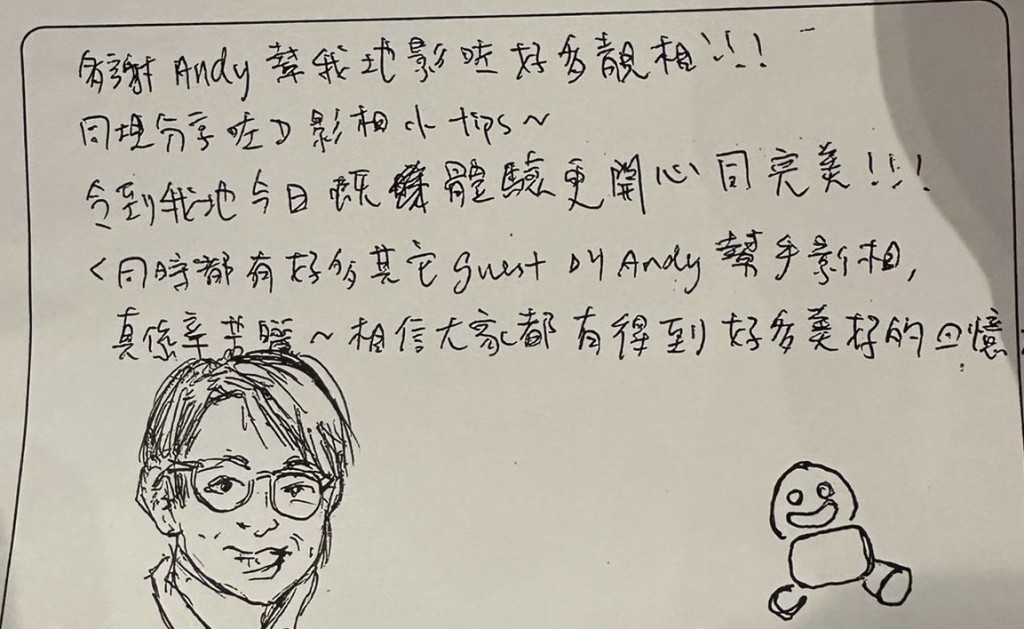 多謝 Andy 幫我地影咗好多靚相!!!
同埋分享咗D影相小 tips~
令到我地今日既體驗更開心同完美!!!
<同時都有好多其它 guest 叫 Andy 幫手影相,
真係辛苦曬~相信大家都有得到好多美好的回憶